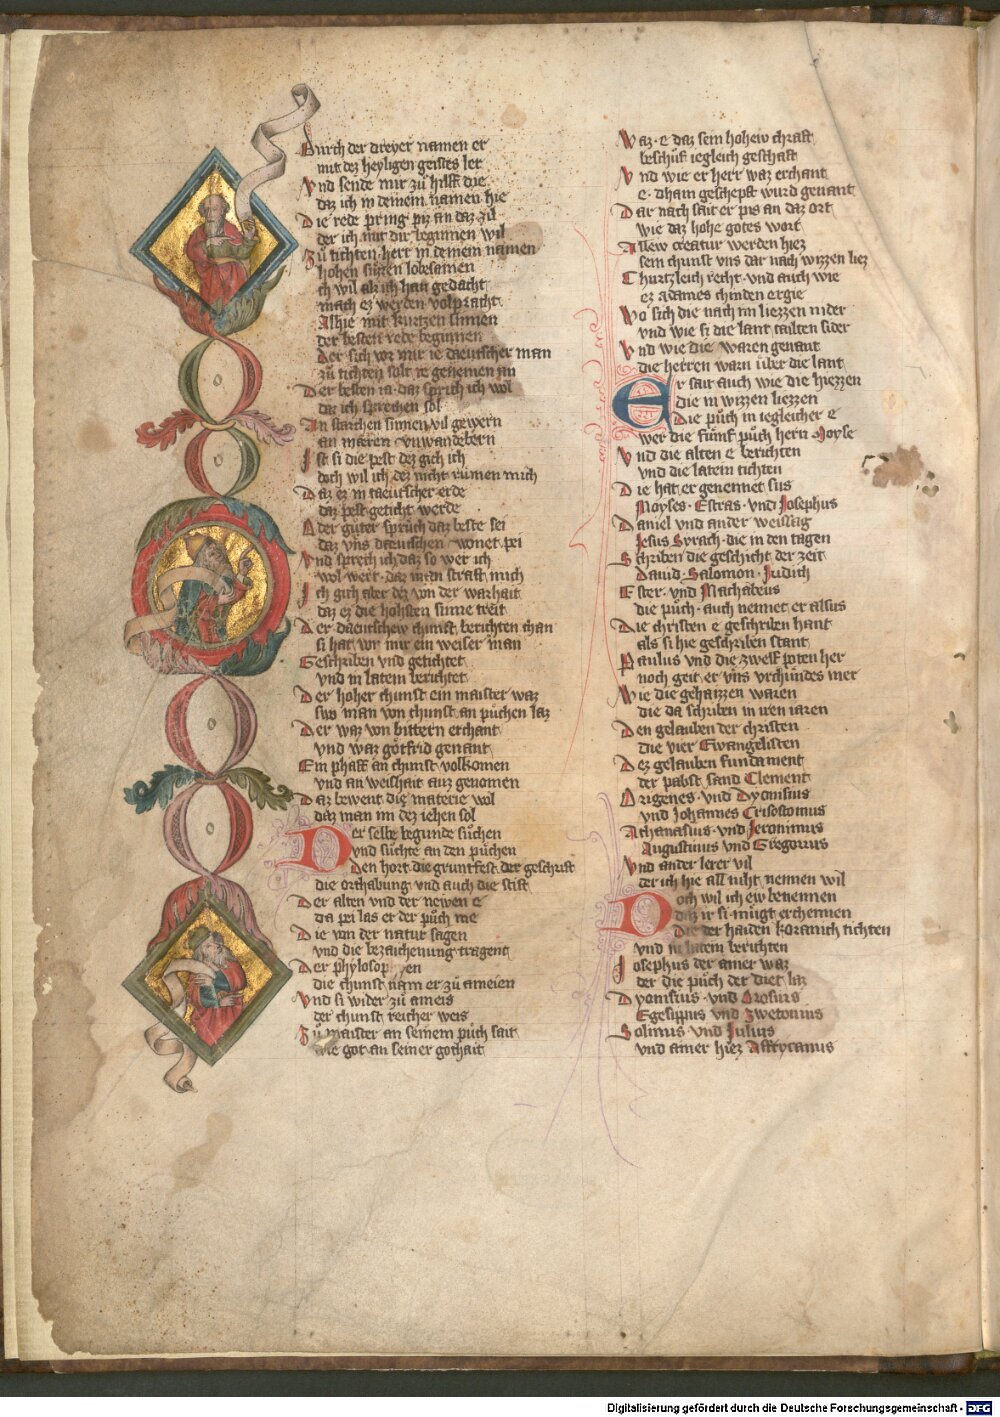 Durch der dreyer namen er
mit dez heyligen geistes ler
Vnd sende mir zů hilff die
daz ich in deinem namen hie
Die rede pring piz an daz zil
der ich mit dir beginnen wil
Zů tichten herr in deinem namen
hohen sinen lobesamen
ch wil als ich han gedacht
mach ez werden volpracht
Alhie mit kurtzen sinnen
der besten rede beginnen
Der sich vor mir ie daeutscher man
zů tichten solt ie genemen an
Der besten ia daz sprich ich wol
daz ich sprechen sol
An starchen sinnen vil gewern
an mæren vnwandebern
Ist si die pest dez gich ich
doch wil ich dez nicht rümen mich
Daz ez in taeutscher erde
daz pest geticht werde
Ader gůter sprůch daz beste sei
daz vns daeutschen wonet pei
Vnd sprech ich daz so wer ich
wol wert daz man straft mich
Ich gich aber dez von der warhait
daz ez die hohsten sinne treit
Der daeutschew chunst berichten chan
si hat vor mir ein weiser man
Geschriben vnd getichtet
vnd in latein berichtet
Der hoher chunst ein maister waz
swo man von chunst an půchen laz
Der waz von bittern erchant
vnd waz götfrid genant
Ein phaff an chunst volkomen
vnd an weishait auz genomen
Daz bewent die materie wol
daz man im dez iehen sol
Der selbe begunde sůchen
vnd sůchte an den půchen
Den hort die gruntfest der geschrift
die orthabung vnd auch die stift
Der alten vnd der newen e
da pei las er der půch me
Die von der natur sagen
vnd die bezaichenung tragent
Der phylosophyen
die chunst nam er zů ameien
Vnd si wider zů ameis
der chunst reicher weis
Zů maister an seinem půch sait
wie got an seiner gothait
Waz e daz sein hohew chraft
beschůf iegleich geschaft
Vnd wie er herr waz erchant
e dhain geschepft wurd genant
Dar nach sait er pis an daz ort
wie daz hohe gotes wort
Allew creatur werden hiez
sein chunst vns dar nach wizzen liez
Churtzleich recht vnd auch wie
ez adames chinden ergie
Wo sich die nach im liezzen nider
vnd wie si die lant tailten sider
Vnd wie die waren genant
die herren warn über die lant
Er sait auch wie die hiezzen
die in wizzen liezzen
Die půch in iegleicher e
wer die fünf půch hern Moyse
Vnd die alten e berichten
vnd die latein tichten
Die hat er genennet sus
Moyses Esras vnd Iosephus
Daniel vnd ander weissag
Iesus Syrach die in den tagen
Schriben die geschicht der zeit
Dauid Salomon Iudich
Ester vnd Machabeus
die půch auch nennet er alsus
Die christen e geschriben hant
als si hie geschriben stant
Paulus vnd die zwelf poten her
noch geit er vns vrchündes mer
Wie die gehaizzen waren
die da schriben in iren iaren
Den gelauben der christen
die vier Ewangelisten
Dez gelauben fundament
der pabst sand Clement
Origenes vnd Dyonisius
vnd Iohannes Crisostomus
Athanasius vnd Ieronimus
Augustinus vnd Gregorius
Vnd ander lerer vil
der ich hie all nicht nennen wil
Doch wil ich ew benennen
daz ir si mügt erchennen
Die der haiden koranich tichten
vnd in latein berichten
Iosephus der ainer waz
der die půch der diet laz
Dyonisius vnd Orosius
Egesippus vnd Swetonius
Solinus vnd Iulius
vnd ainer hiez Affrycanus
Digitalisierung gefördert durch die Deutsche Forschungsgemeinschaft - DFG